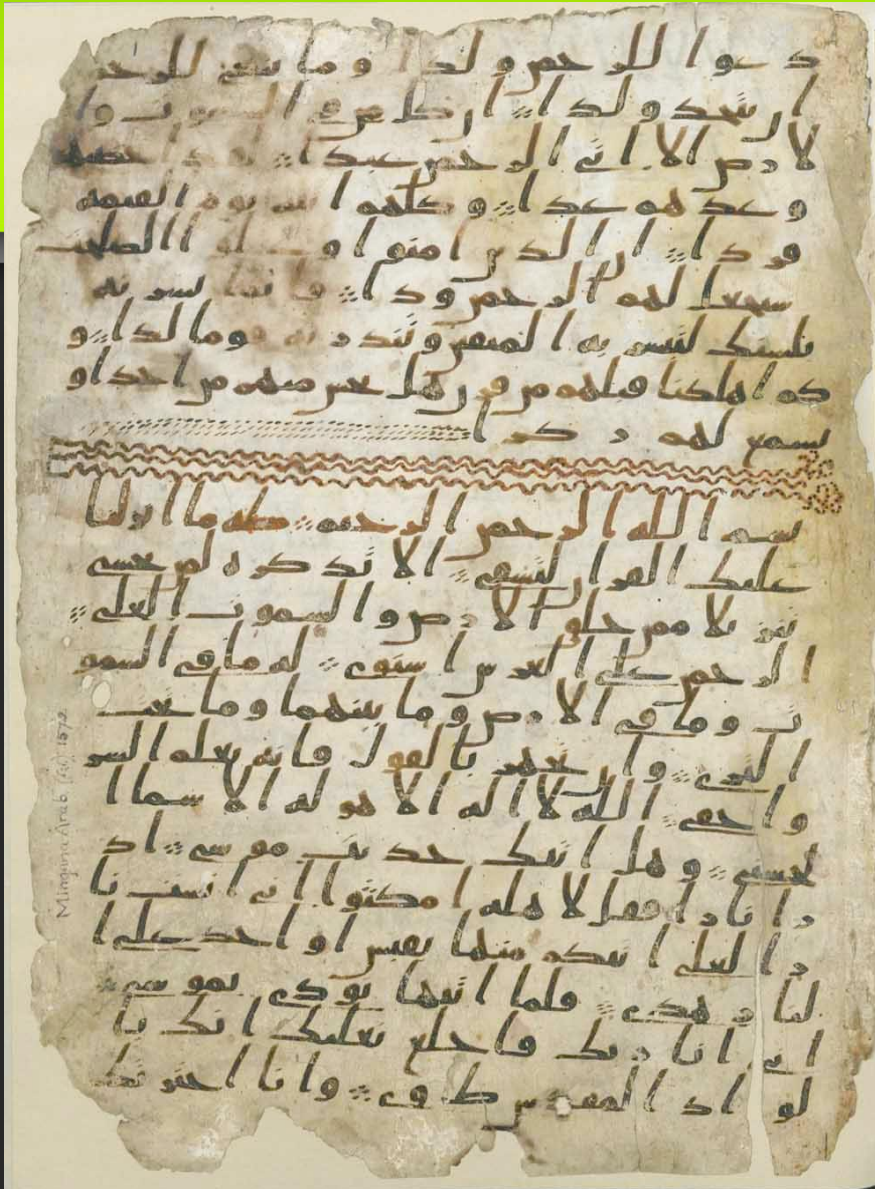 دعوا للرحمن ولدا وما ينبغي للرحمن
ان يتخذ ولدا ان كل من في السموت وا
لارض الا اتي الرحمن عبدا لقد احصيهم
وعدهم عدا وكلهم اتيه يوم القيمه
فردا ان الذين امنوا وعملوا الصلحت
سيجعل لهم الرحمن ودا فانما يسرنه
بلسنك لتبشر به المتقين وتنذر به قوما لدا و
كم اهلكنا قبلهم من قرن هل تحس منهم من احد او
تسمع لهم ركزا
بسم الله الرحمن الرحيم طه ما انزلنا
عليك القران لتشقى الا تذكره لمن يخشى
تنزيلا ممن خلق الارض والسموت العلى
الرحمن على العرش استوى له ما في السمو
ت وما في الارض وما بينهما وما تحت
الثرى وان تجهر بالقول فانه يعلم السر
واخفى الله لا اله الا هو له الاسما ا
لحسنى وهل اتيك حديث موسى اذ
را نارا فقل لاهله امكثوا اني انست نا
را لعلي اتيكم منها بقبس او اجد على ا
لنار هدى فلما اتيها نودي يموسى
اني انا ربك فاخلع نعليك انك با
لواد المقدس طوى وانا اخترتك
Mingana Arab (Isl) 1572